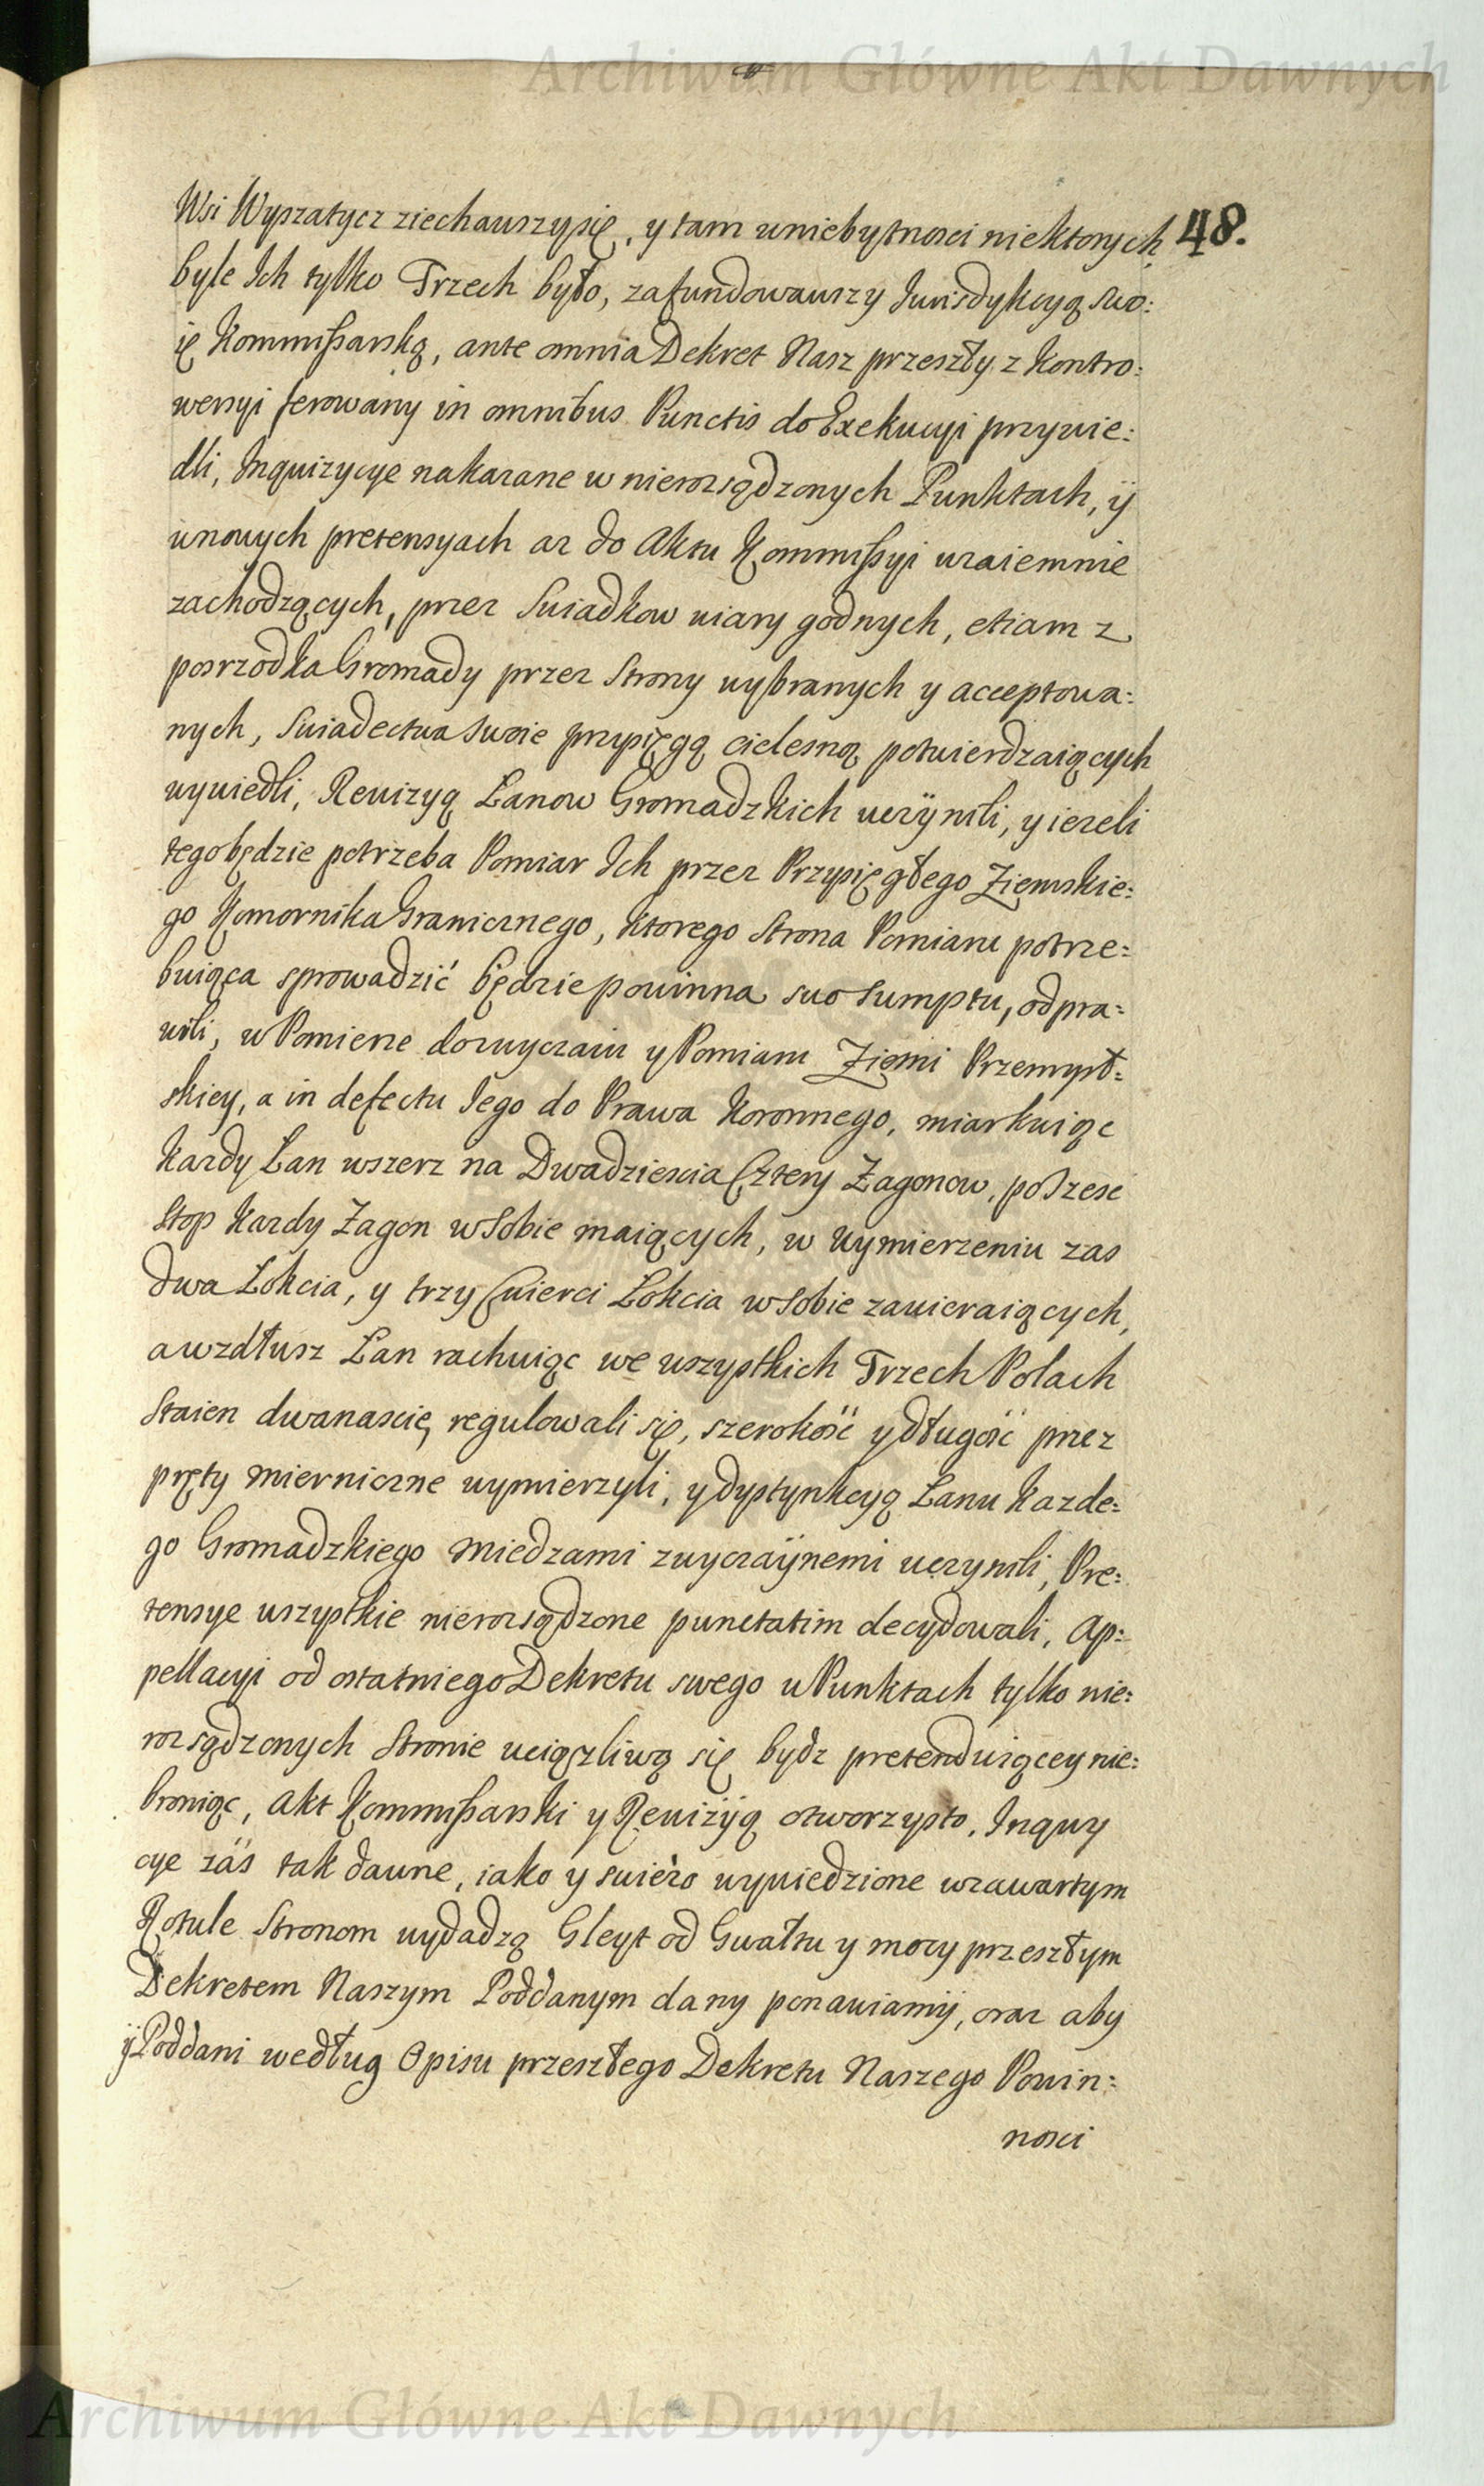 Archiwum Główne Akt Dawnych
48.
Wsi Wyszatycz ziechawszysię, y tam wniebytnosci niektorych
byle Ich tylko Trzech było, zafundowawszy Jurisdykcyą swo:
ię Kommissarską, ante omnia Dekret Nasz przeszły z Kontro:
wersyi ferowany in omnibus Punctis do Exekucyi przywie:
dli, Inquizycye nakazane w nierozsądzonych Punktach, ÿ
wnowych pretensyach az do Aktu Kommissyi wzaiemnie
zachodzących, przez Swiadkow wiary godnych, etiam z
posrzodka Gromady przez Strony wybranych y acceptowa:
nych, Swiadectwa swoie przysięgą cielesną potwierdzaiących
wywiedli, Rewizyą Lanow Gromadzkich uczÿnili, y iezeli
tego będzie potrzeba Pomiar Ich przez Przysięgłego Ziemskie:
go Komornika Granicznego, ktorego Strona Pomiaru potrze:
buiąca sprowadzić będzie powinna suo sumptu, odpra:
wili, w Pomierze dozwyczaiu y Pomiaru Ziemi Przemysł:
skiey, a in defectu Iego do Prawa Koronnego, miarkuiąc
Kazdy Lan wszerz na Dwadziescia Cztery Zagonow, po Szesc
Stop Kazdy Zagon w Sobie maiących, w wymierzeniu zas
dwa Lokcia, y trzy Cwierci Lokcia w Sobie zawieraiących,
a wzdłusz Lan rachuiąc we wszystkich Trzech Polach
Staien dwanascie, regulowali się, szerokość y długość przez
pręty miernicze wymierzyli, y dystynkcyą Lanu Kazde:
go Gromadzkiego miedzami zwyczaÿnemi uczynili, Pre:
tensye wszystkie nierozsądzone punctatim decydowali, Ap:
pellacyi od ostatniego Dekretu swego w Punktach tylko nie:
rozsądzonych Stronie uciązliwą się bydz pretenduiącey nie:
broniąc, Akt Kommissarski y Rewizÿą otworzysto, Inquy
cye zás tak dawne, iako y swiézo wywiedzione wzawartym
Rotule Stronom wydadzą Gleyt od Gwałtu y mocy przeszłym
Dekretem Naszym Poddanym dany ponawiamÿ, oraz aby
ÿ Poddani według Opisu przeszłego Dekretu Naszego Powin:
nosci
Archiwum Główne Akt Dawnych